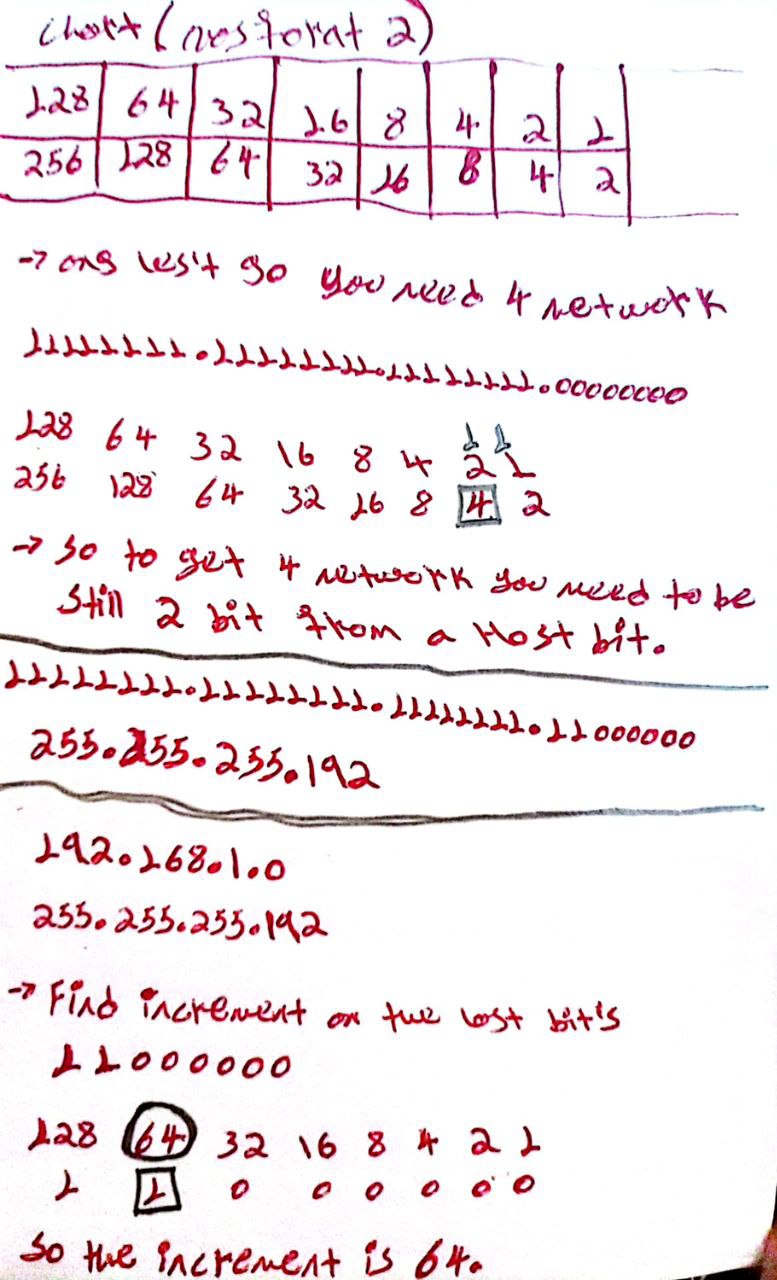 chart (nosforat 2)
128 64 32 16 8 4 2 1
256 128 64 32 16 8 4 2
→ ong les't go you need 4 network
11111111.11111111.11111111.00000000
1 1
128 64 32 16 8 4 2 1
256 128 64 32 16 8 4 2
→ so to get 4 network you need to be
still 2 bit from a Host bit.
11111111.11111111.11111111.11000000
255.255.255.192
192.168.1.0
255.255.255.192
→ Find increment on the last bit's
11000000
128 64 32 16 8 4 2 1
1 1 0 0 0 0 0 0
So the increment is 64.